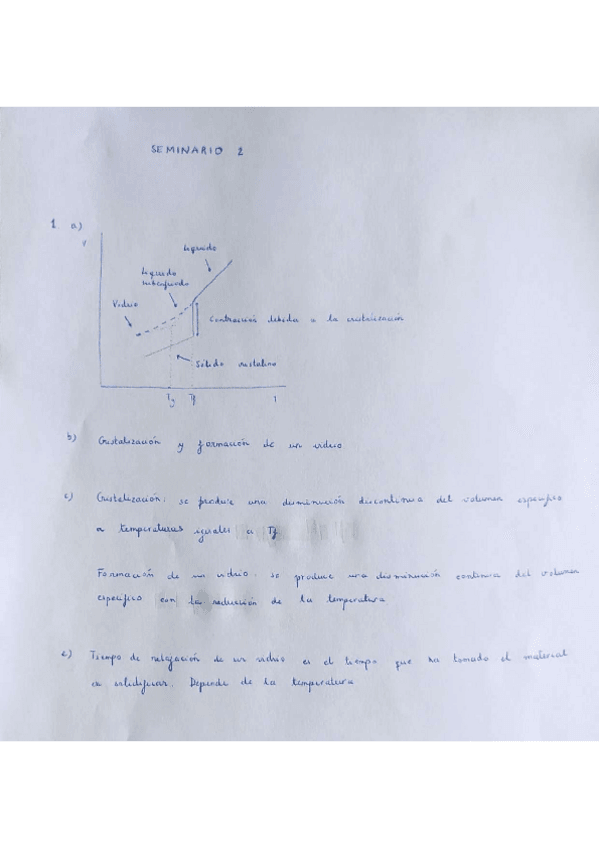 SEMINARIO 2
1 a)
V
Líquido
Líquido
subenfriado
Vidrio
Contracción debida a la cristalización
Sólido cristalino
Tg Tf T
b) Cristalización y formación de un vidrio
c) Cristalización: se produce una disminución discontinua del volumen específico
a temperaturas iguales a Tf
Formación de un vidrio: se produce una disminución continua del volumen
específico con la reducción de la temperatura
e) Tiempo de relajación de un vidrio es el tiempo que ha tomado el material
en solidificar. Depende de la temperatura